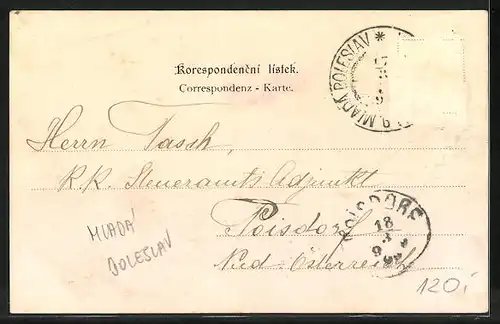 Korespondenční lístek.
Correspondenz - Karte.
MLADÁ BOLESLAV *
Herrn Tasch,
K.K. Steueramts Adjunkt
Poisdorf
Nied. Österreich
POISDORF
18
3
MLADÁ
BOLESLAV
120,-